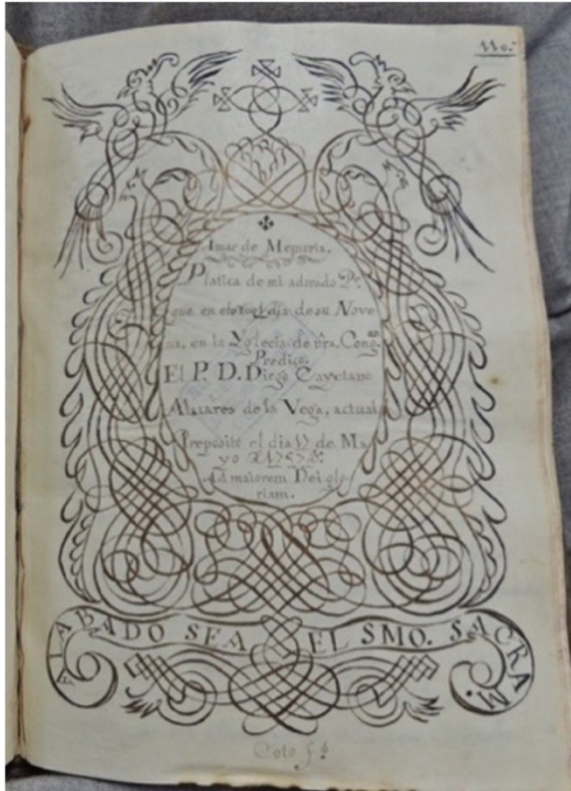 Amar de Memoria.
Platica de mi adorado Pe.
que en el dia de su Nove
na, en la Yglecia de nra. Congon.
Predico.
El P. D. Diego Cayetano
de la Vega, actual
Preposito el dia 17 de Ma
yo
Ad maiorem Dei glo
riam.
ALABADO SEA EL SMO. SACRAM.